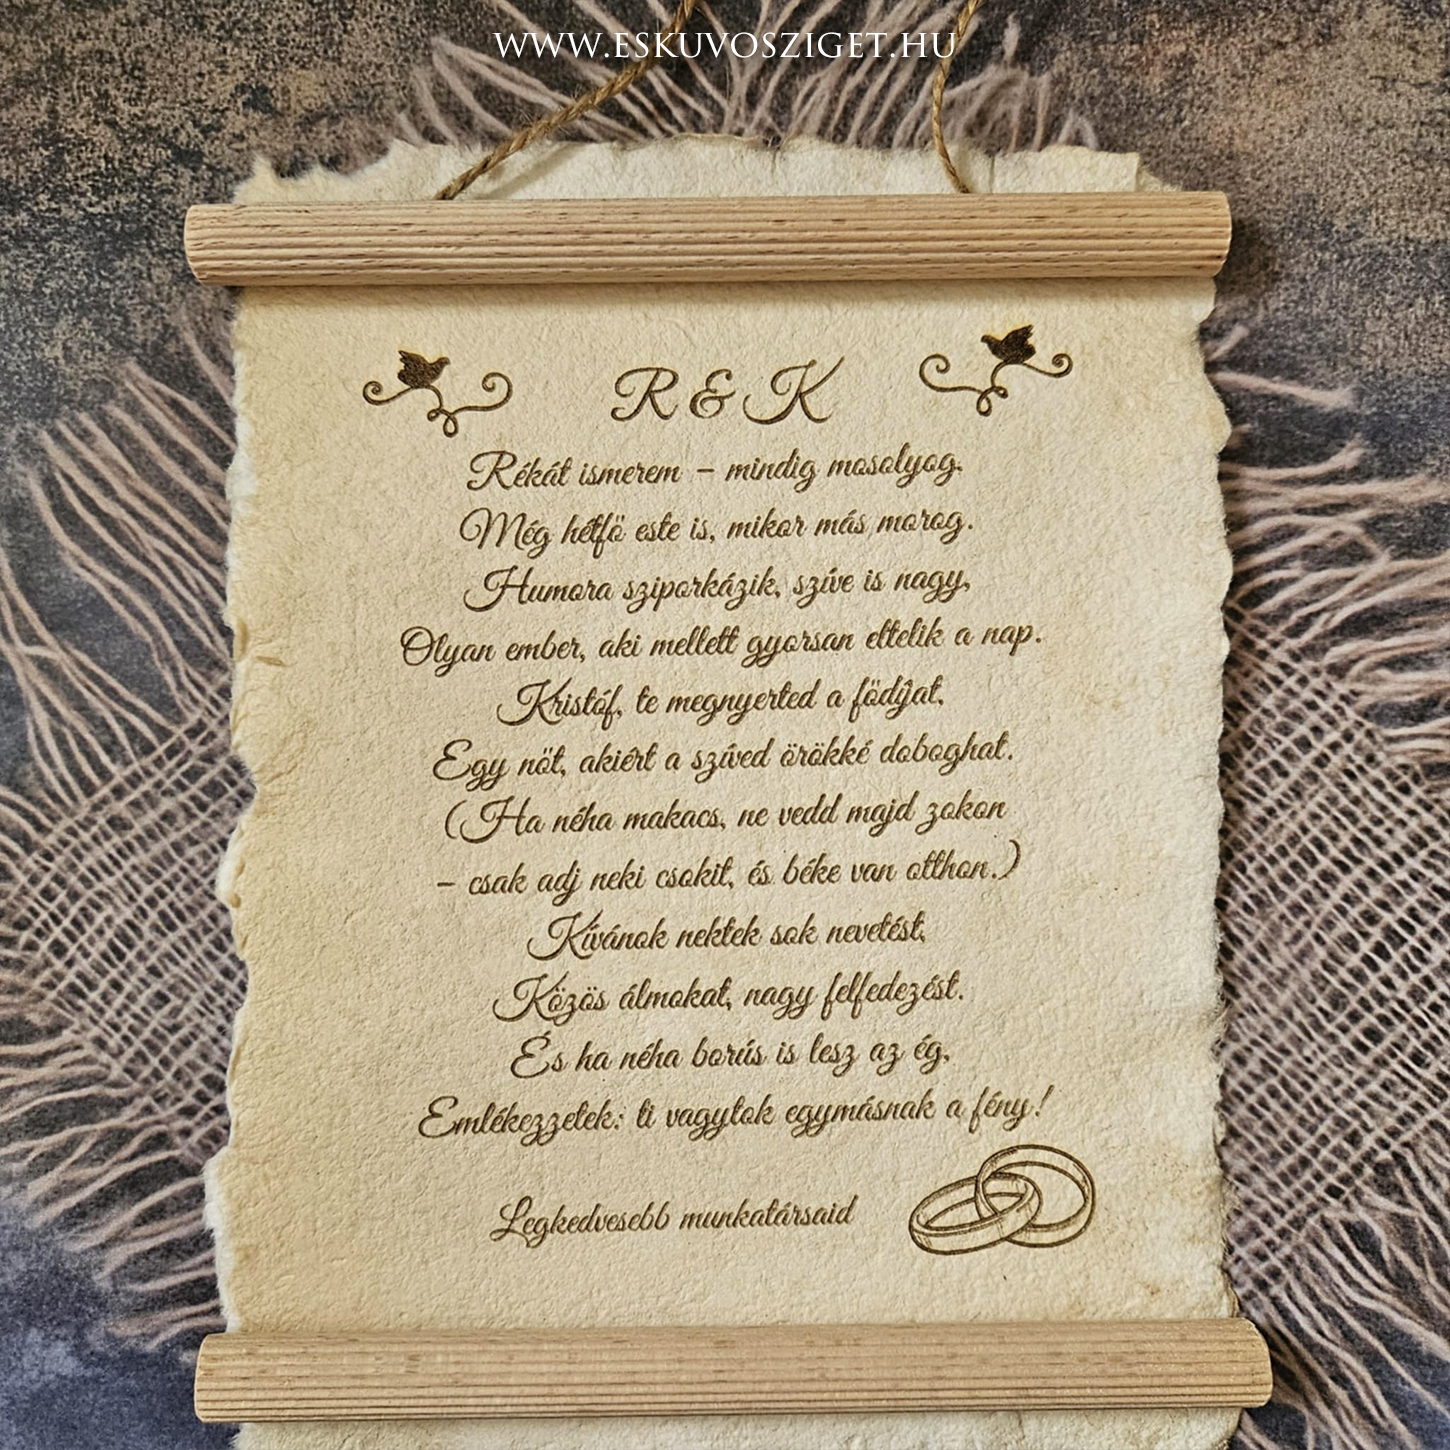 WWW.ESKUVOSZIGET.HU
R & K
Rékát ismerem – mindig mosolyog.
Még hétfő este is, mikor más morog.
Humora sziporkázik, szíve is nagy,
Olyan ember, aki mellett gyorsan eltelik a nap.
Kristóf, te megnyerted a fődíjat,
Egy nőt, akiért a szíved örökké doboghat.
(Ha néha makacs, ne vedd majd zokon
– csak adj neki csokit, és béke van otthon.)
Kívánok nektek sok nevetést,
Közös álmokat, nagy felfedezést.
És ha néha borús is lesz az ég,
Emlékezzetek: ti vagytok egymásnak a fény!
Legkedvesebb munkatársaid